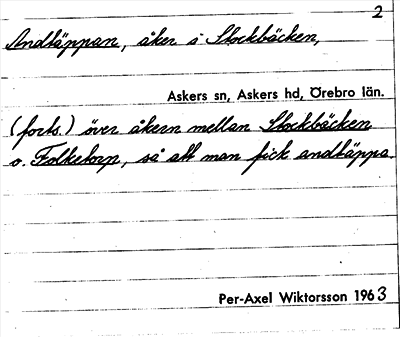 2
Andtäppan, åker i Stockbäcken,
Askers sn, Askers hd, Örebro län.
(forts.) över åkern mellan Stockbäcken
o. Folketorp, så att man fick andtäppa.
Per-Axel Wiktorsson 1963